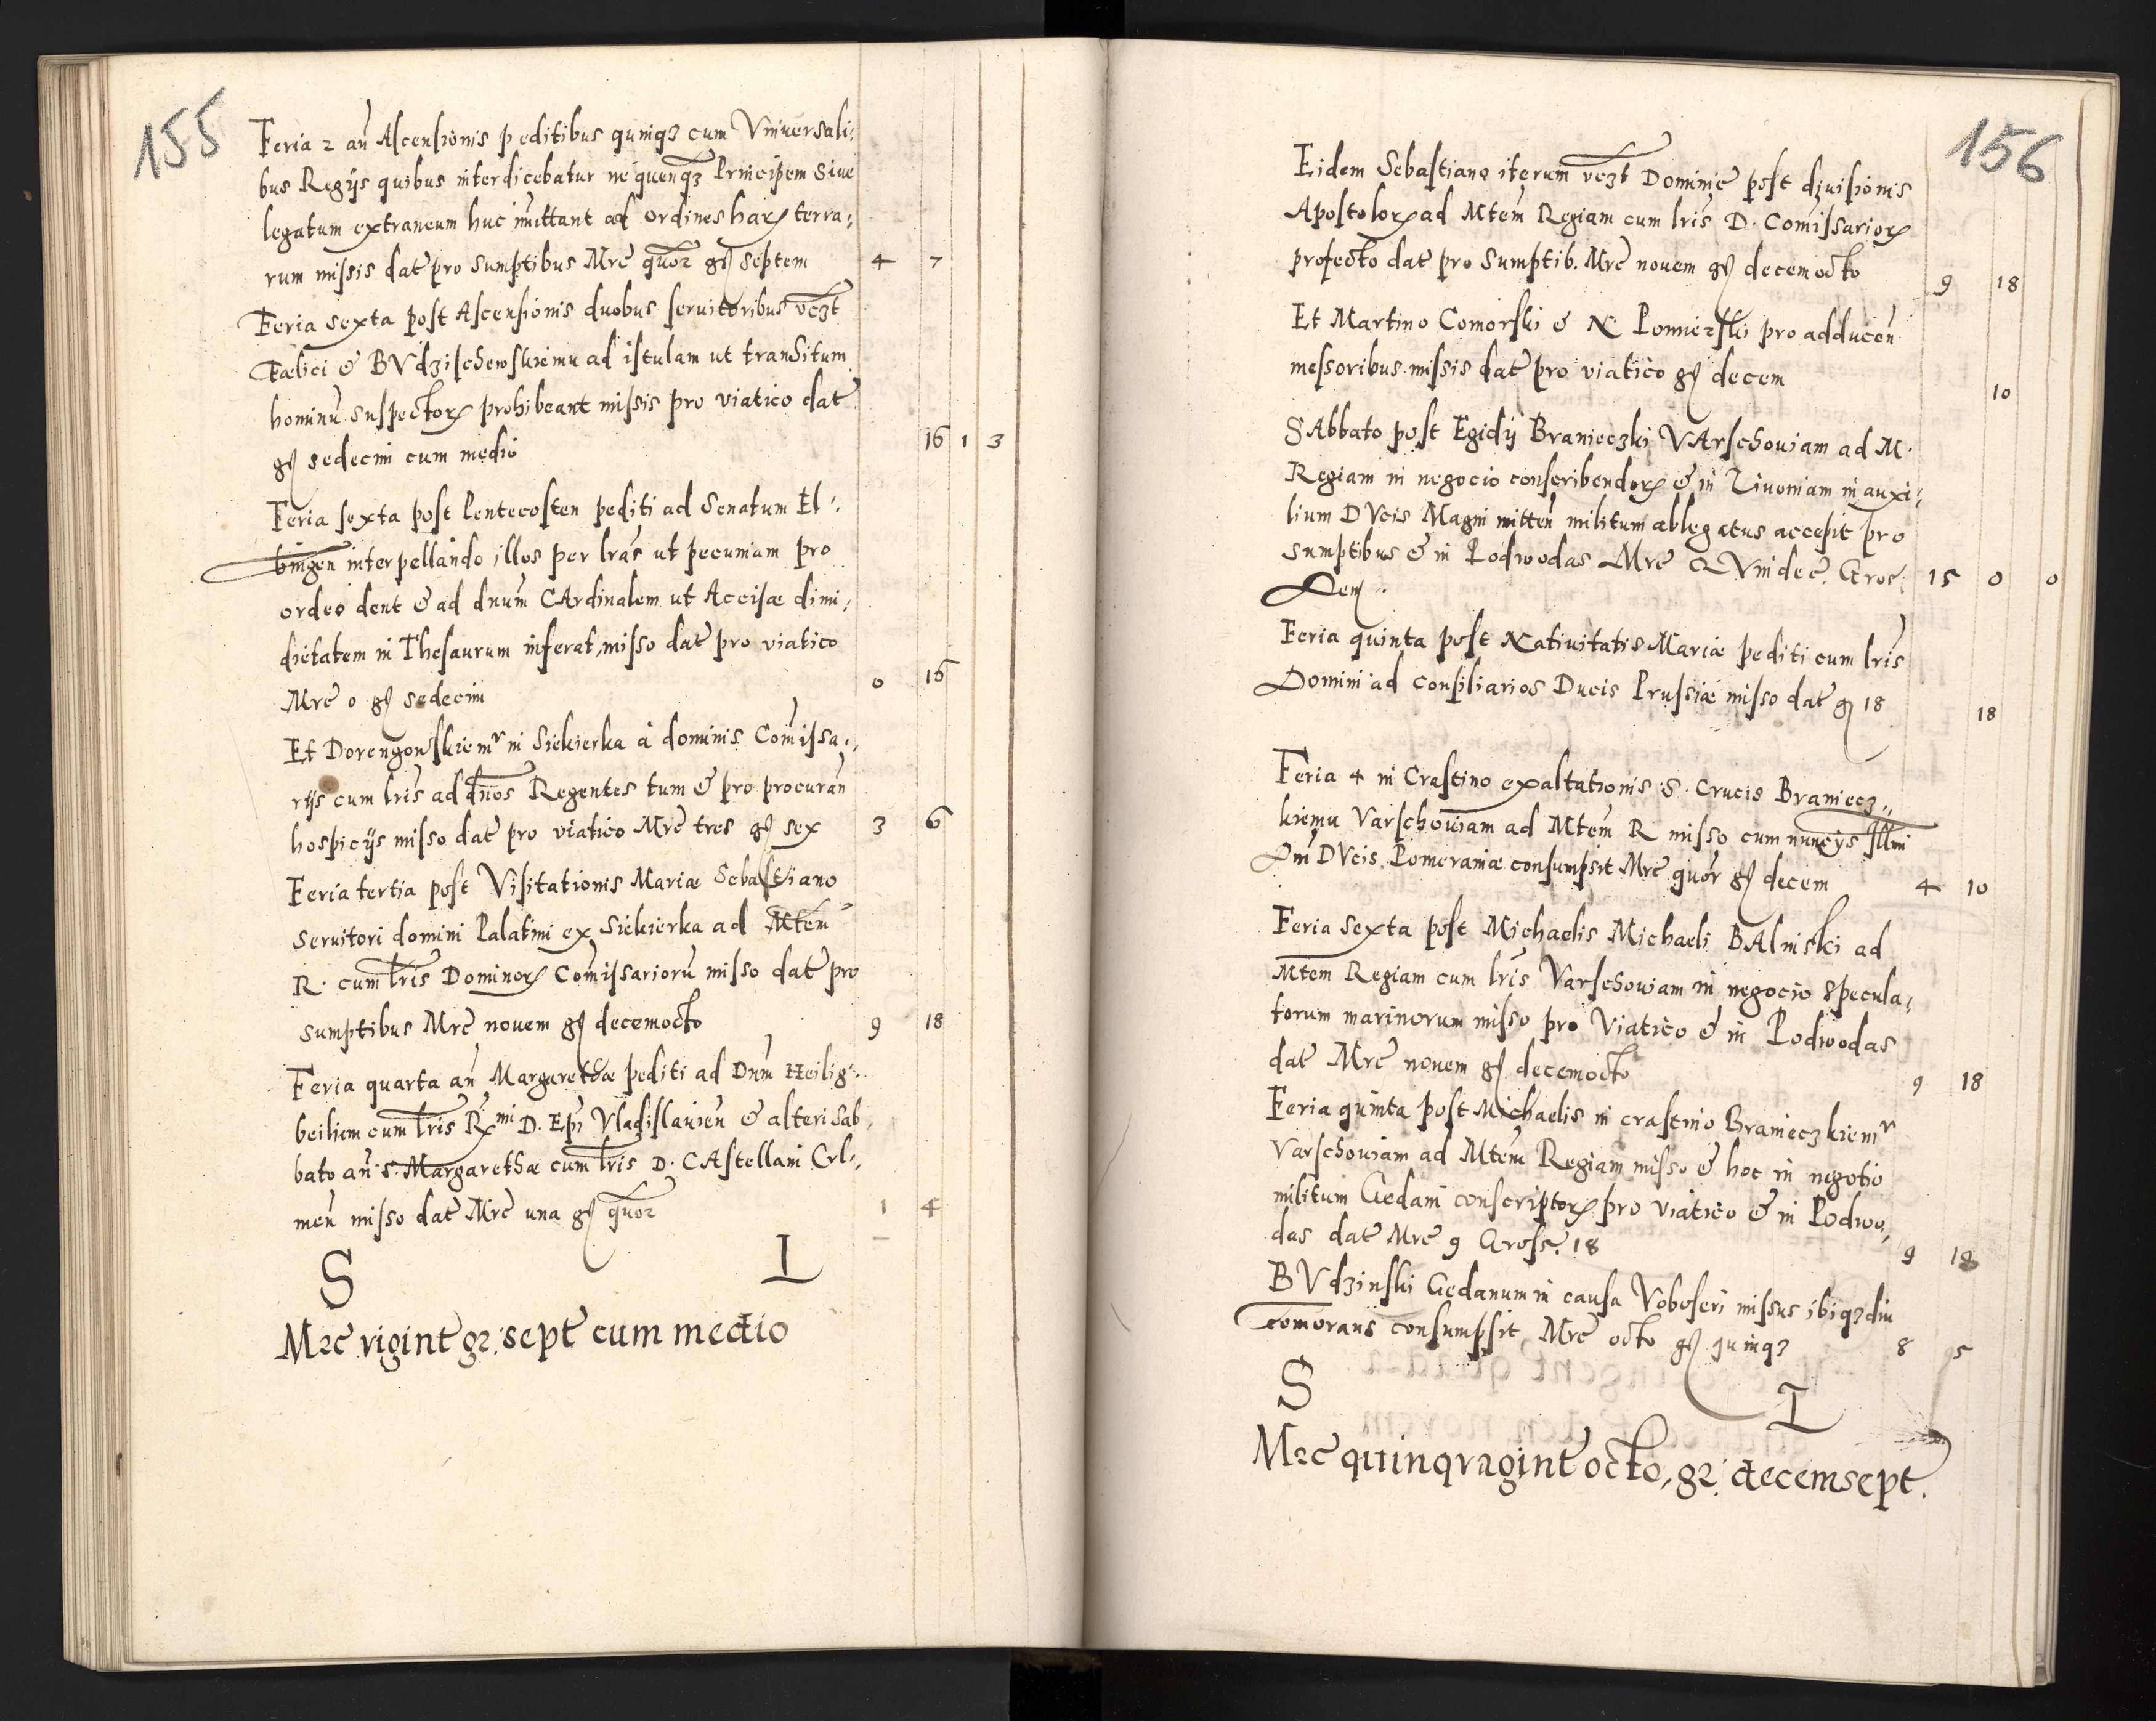 155
Feria 2 añ Ascensionis peditibus quinqꝫ cum Vniuersali:
bus Regijs quibus interdicebatur ne quenqꝫ Principem Siue
legatum extraneum huc mittant ad ordines harꝝ terra:
rum missis dat pro sumptibus Mrc quor gṡ septem 4 7
Feria sexta post Ascensionis duobus seruitoribus vczt
Fælici & BVdzischewskiemu ad istulam ut transitum
hominũ suspectorꝝ prohibeant missis pro viatico dat
gṡ sedecim cum medio 16 1 3
Feria sexta post Pentecosten pediti ad Senatum El:
bingen interpellando illos per lras ut pecuniam pro
ordeo dent & ad dnum CArdinalem ut Accisæ dimi:
dietatem in Thesaurum inferat, misso dat pro viatico
Mrc 0 gṡ sedecim 0 16
Et Dorengowskiemu in Siekierka à dominis Comissa:
rijs cum lris ad dnos Regentes tum & pro procurañ
hospicijs misso dat pro viatico Mrc tres gṡ sex 3 6
Feria tertia post Visitationis Mariæ Sebastiano
Seruitori domini Palatini ex Siekierka ad Mtem
R. cum lris Dominorꝝ Comissariorũ misso dat pro
sumptibus Mrc nouem gṡ decemocto 9 18
Feria quarta añ Margarethæ pediti ad Dnm Heilig:
beiliem cum lris Rmi D. Epi Vladislauieñ & alteri Sab
bato añ S. Margarethæ cum lris D. CAstellani Crl:
meñ misso dat Mrc una gṡ quor 1 4
S L
Mrc vigint gr. sept cum medio
156
Eidem Sebastiano iterum vczt Dominic post diuisionis
Apostolorꝝ ad Mtem Regiam cum lris D. Comissariorꝝ
profecto dat pro Sumptib. Mrc nouem gṡ decemocto 9 18
Et Martino Comorski & N. Pomierski pro adduceñ
messoribus missis dat pro viatico gṡ decem 10
SAbbato post Egidij Branieczki VArschouiam ad M.
Regiam in negocio conscribendorꝝ & in Liuoniam in auxi:
lium DVcis Magni mitteñ militum ablegatus accepit pro
sumptibus & in Podwodas Mrc QVindec. Gros.
Den. 15 0 0
Feria quinta post Natiuitatis Mariæ pediti cum lris
Domini ad consiliarios Ducis Prussiæ misso dat gṡ 18 18
Feria 4 in Crastino exaltationis S. Crucis Braniecz:
kiemu Varschouiam ad Mtem R misso cum nuncijs Illmi
Dni DVcis Pomeraniæ consumpsit Mrc quor gṡ decem 4 10
Feria sexta post Michaelis Michaeli BAlniski ad
Mtem Regiam cum lris Varschouiam in negocio Specula:
torum marinorum misso pro Viatico & in Podwodas
dat Mrc nouem gṡ decemocto 9 18
Feria quinta post Michaelis in crastino Branieczkiemu
Varschouiam ad Mtem Regiam misso & hoc in negotio
militum Gedani conscriptorꝝ pro viatico & in Podwo:
das dat Mrc 9 Gross. 18 9 18
BVdzinski Gedanum in causa Voboseri missus ibiqꝫ diu
comorans consumpsit Mrc octo gṡ quinqꝫ 8 5
S L
Mrc quinqvagint octo, gr. decemsept.